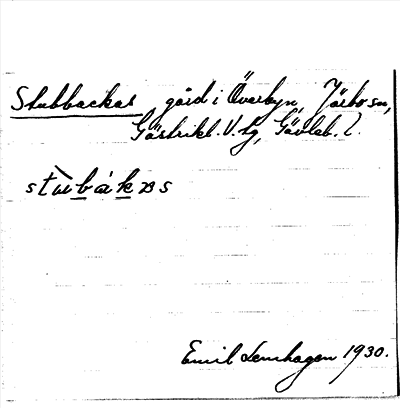 Stubbackas gård i Överbyn, Järbo sn,
Gästrikl. V. tg, Gävleb. l.
stubákas
Emil Lenhagen 1930.